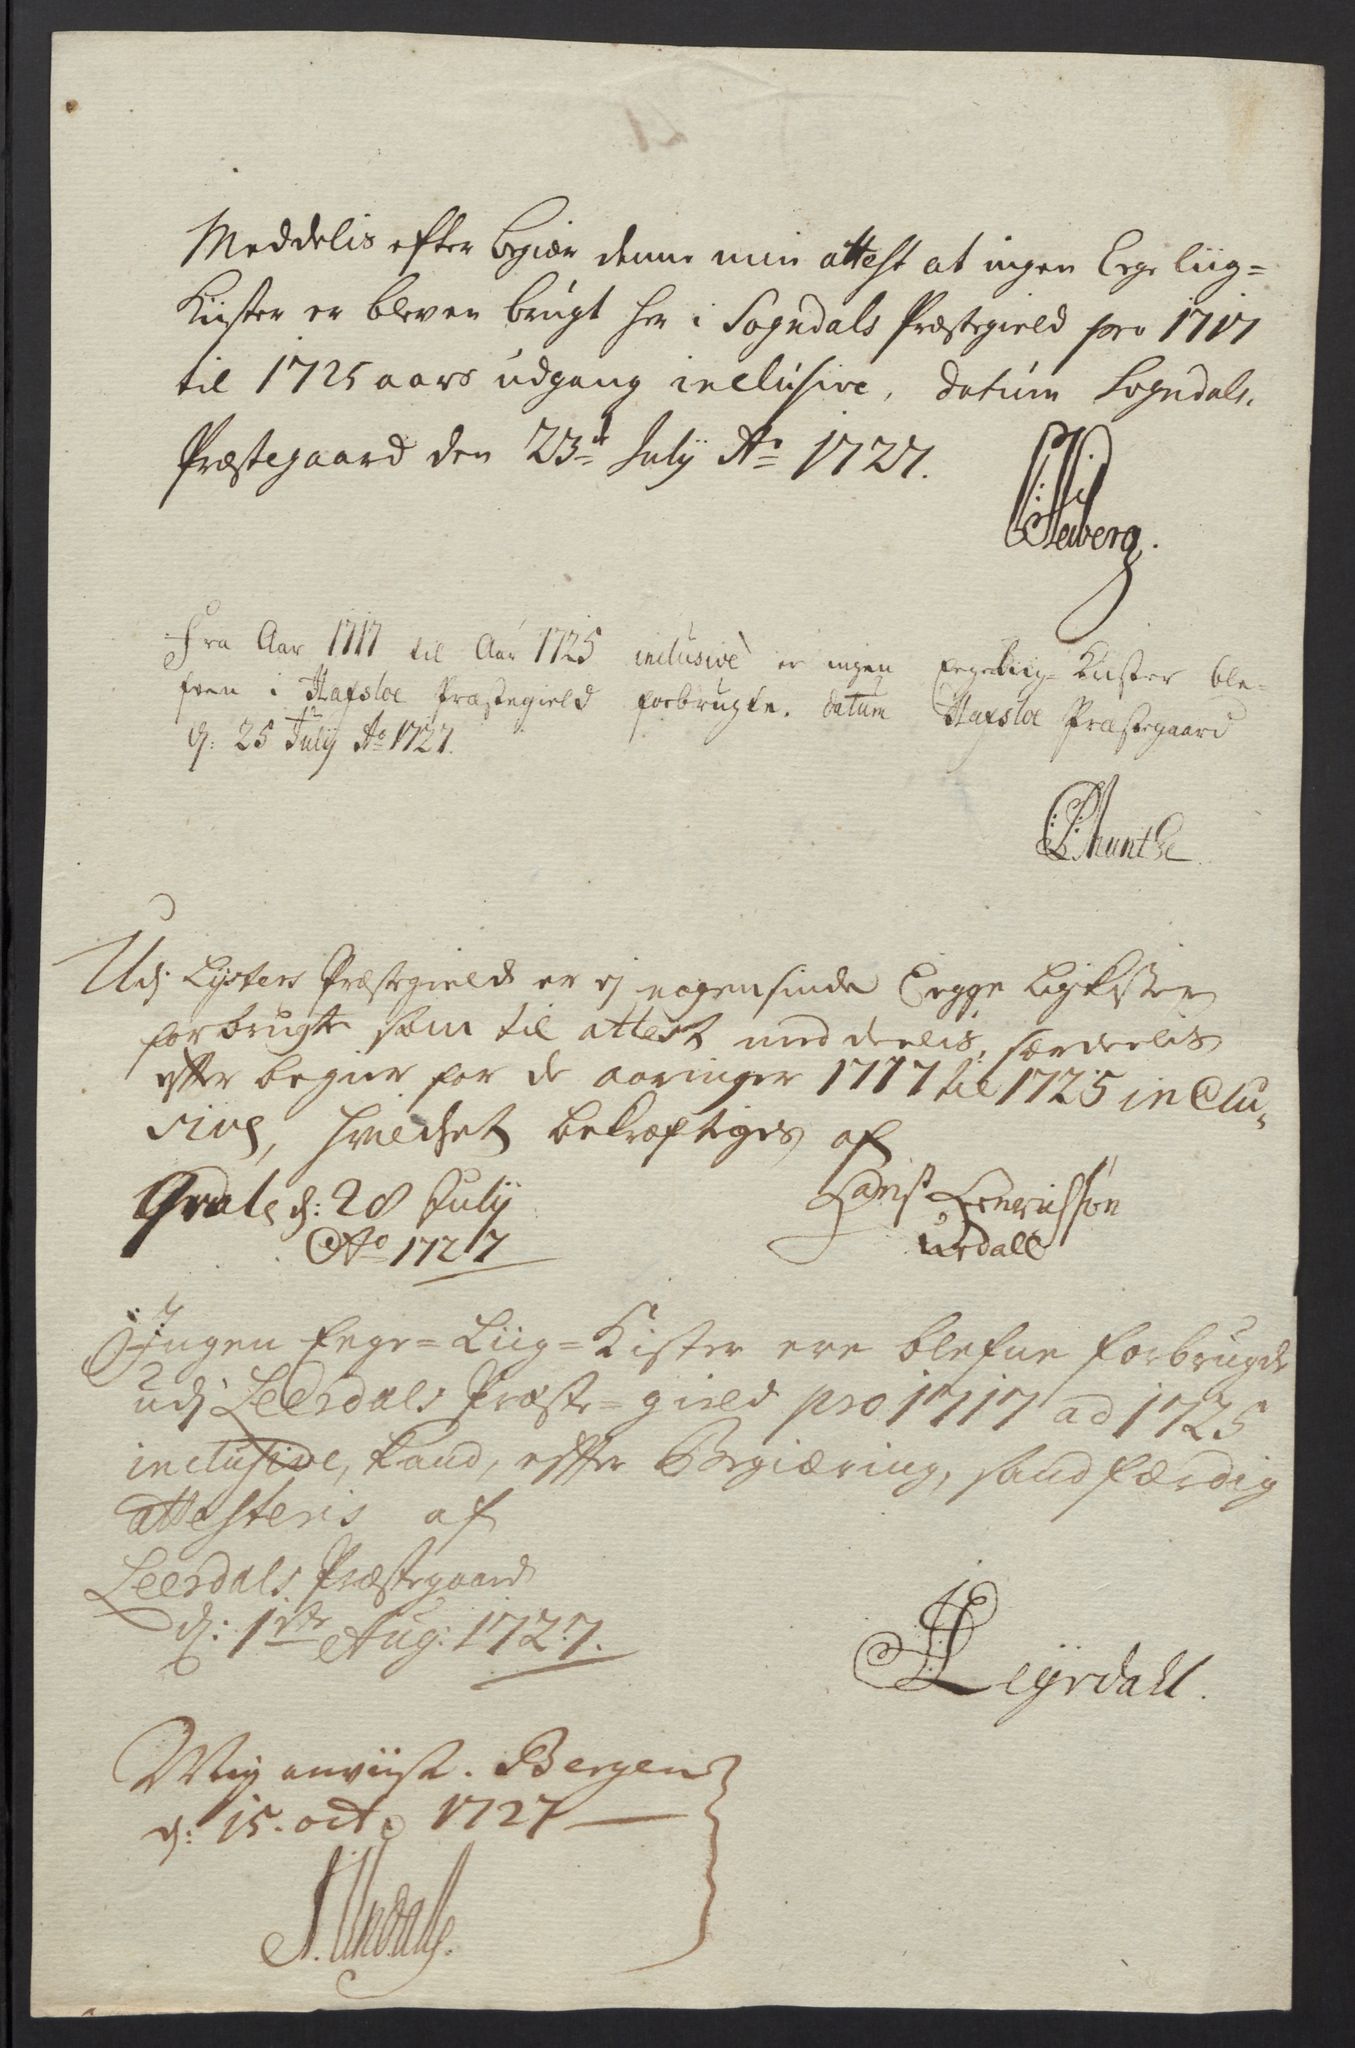 Meddelis efter begiær denne min attest at ingen Eege liig=
Kiister er bleven brugt her i Sogndals Præstegield pro 1717
til 1725 aars udgang inclusive, datum Sogndals
Præstegaard den 23de July Ao 1727.
Heiberg.
Fra Aar 1717 til Aar 1725 inclusive er ingen Eege liig= Kiister ble=
fven i Hafsloe Præstegield forbrugte. datum Hafsloe Præstegaard
d: 25 July Ao 1727.
Munthe
Udj Lysters Præstegield er ej nogensinde Eegge Ligkister
forbrugte som til attest meddeelis, særdeelis
efter begier for de aaringer 1717 til 1725 inclu-
sive, hvilchet bekræftiges af
d: 28 July
Ao 1727
Urdall
Ingen Eege= Liig= Kister ere blefne forbrugde
udj Leerdals Præste= gield pro 1717 ad 1725
inclusive, kand, efter Begiæring, sandfærdig
attesteris af
Leerdals Præstegaard
d: 1ste Aug: 1727.
Leyrdall.
Mig anviist. Bergen
d: 15. oct 1727